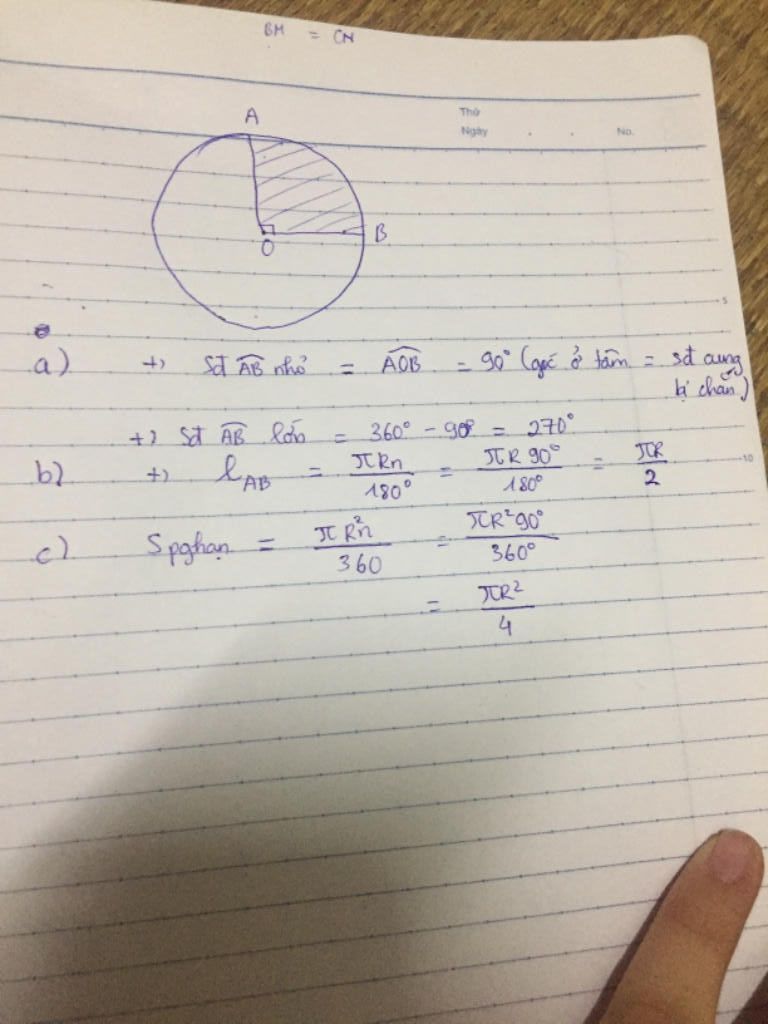 BM = CN
Thứ
Ngày . . No.
A
B
O
5
a) +) Sđ AB nhỏ = AOB = 90° (góc ở tâm = sđ cung
bị chắn)
+) Sđ AB lớn = 360° - 90° = 270°
b) +) l_AB = πRn/180° = πR 90°/180° = πR/2
10
c) S pghạn = πR²n/360 = πR²90°/360°
= πR²/4